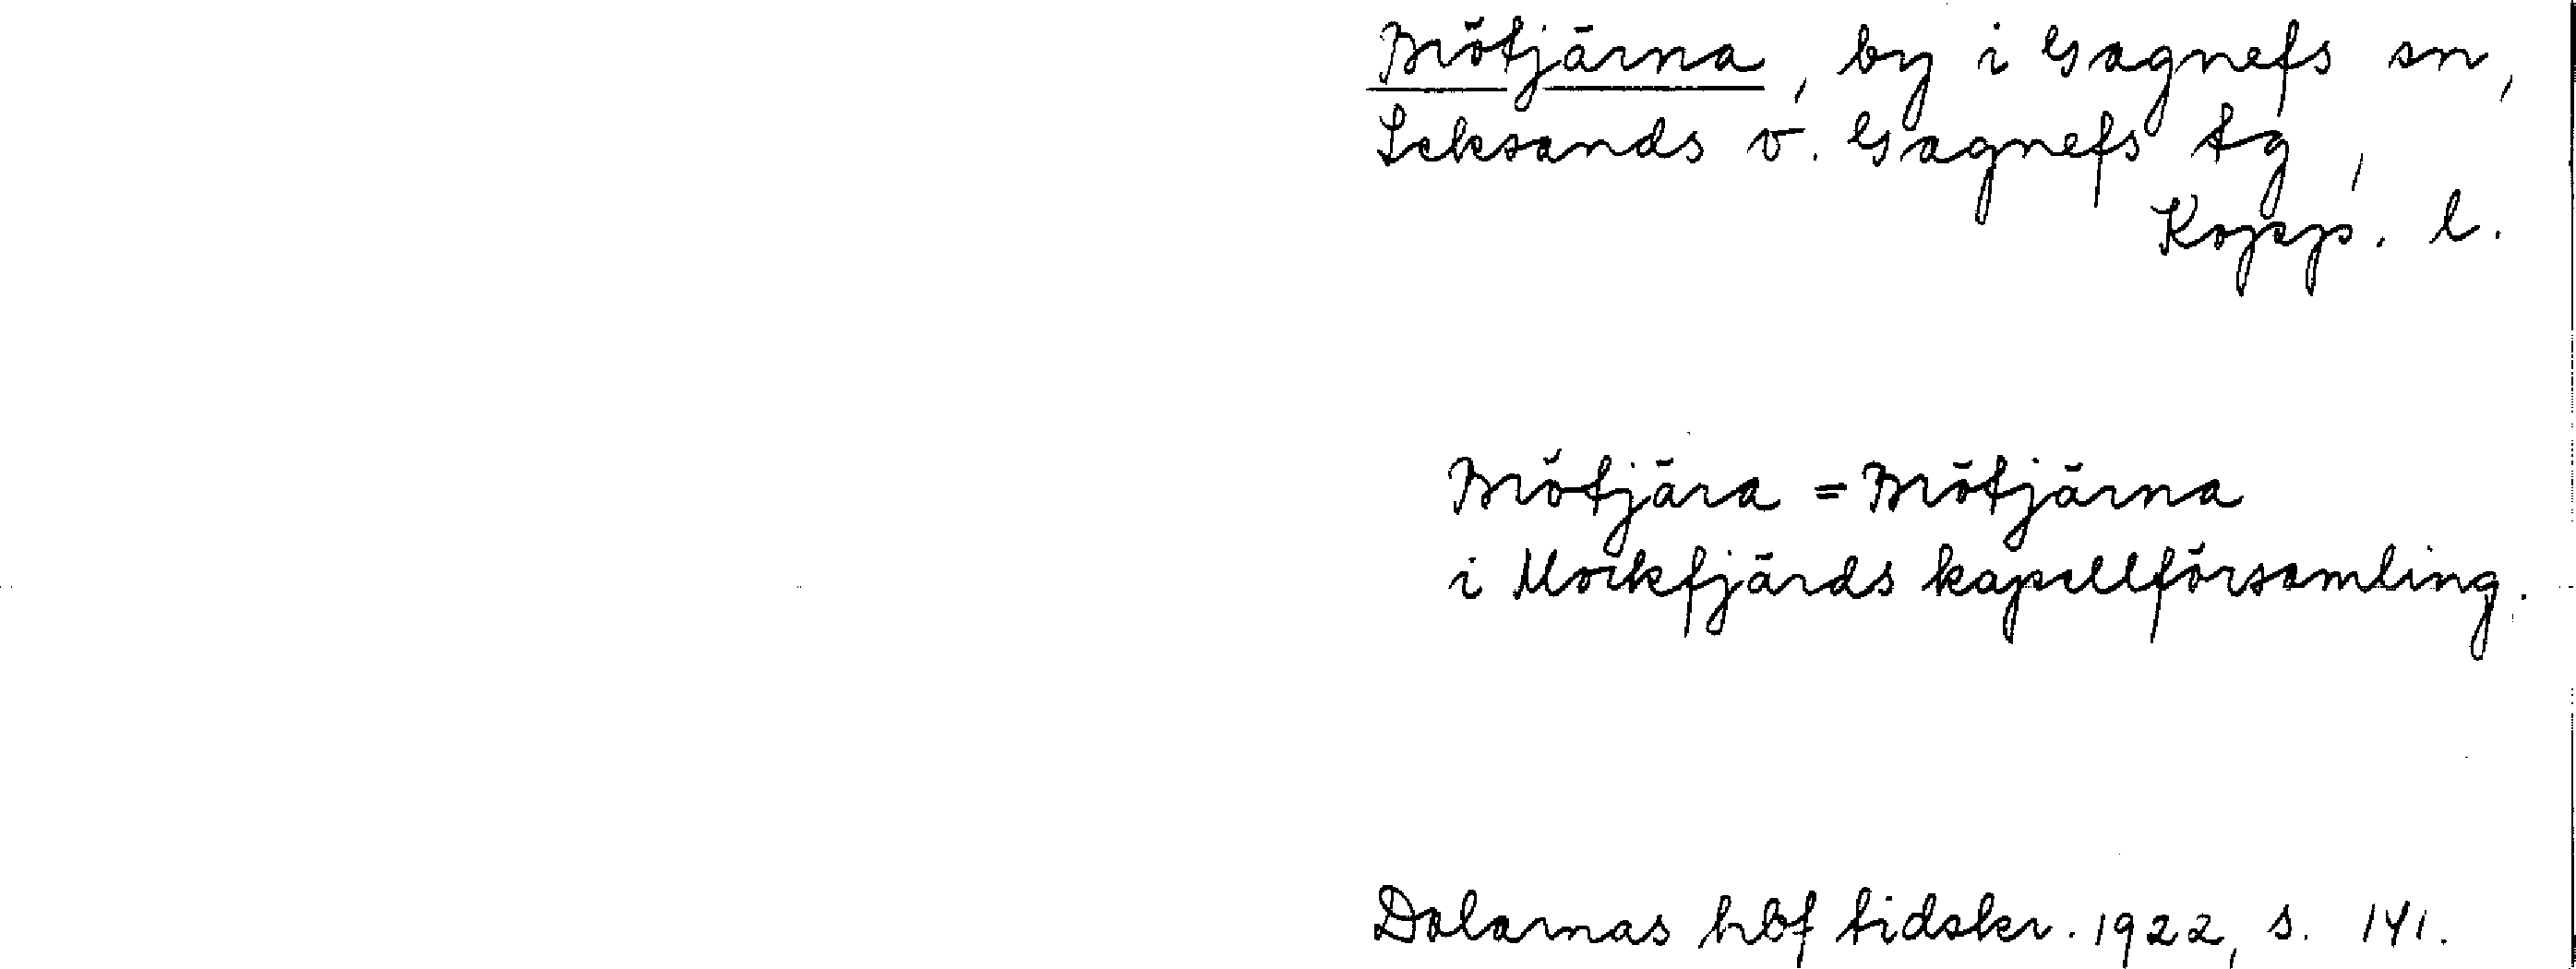 Brötjärna, by i Gagnefs sn,
Leksands o. Gagnefs tg,
Kopp. l.
Brötjära = Brötjärna
i Mockfjärds kapellförsamling.
Dalarnas hbf tidskr. 1922, s. 141.